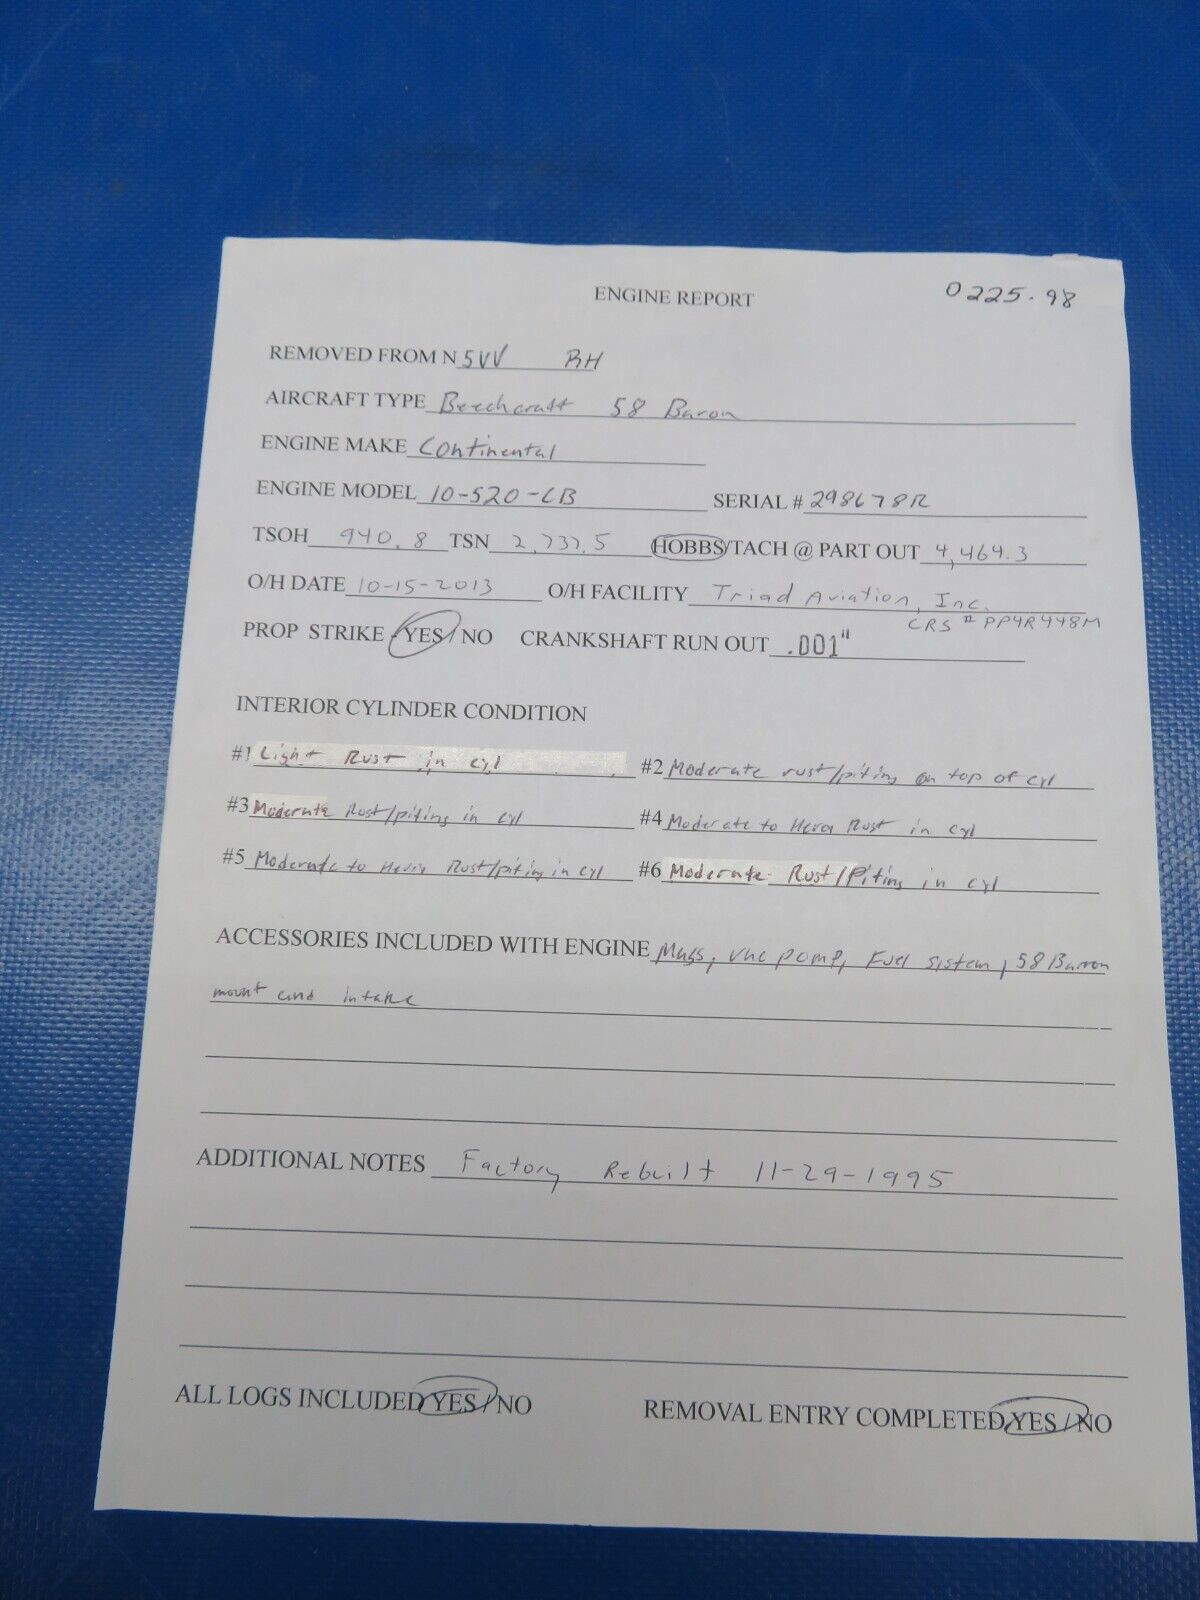 ENGINE REPORT 0225.98
REMOVED FROM N 5VV RH
AIRCRAFT TYPE Beechcraft 58 Baron
ENGINE MAKE Continental
ENGINE MODEL IO-520-CB SERIAL # 298678R
TSOH 940.8 TSN 2,737.5 HOBBS/TACH @ PART OUT 4,464.3
O/H DATE 10-15-2013 O/H FACILITY Triad Aviation, Inc.
CRS # PP4R448M
PROP STRIKE YES / NO CRANKSHAFT RUN OUT .001"
INTERIOR CYLINDER CONDITION
#1 Light Rust in cyl #2 Moderate rust/piting on top of cyl
#3 Moderate Rust/piting in cyl #4 Moderate to Hevy Rust in cyl
#5 Moderate to Hevy Rust/piting in cyl #6 Moderate Rust/Piting in cyl
ACCESSORIES INCLUDED WITH ENGINE Mags, vac pomp, Fuel system, 58 Baron
mount and intake
ADDITIONAL NOTES Factory Rebuilt 11-29-1995
ALL LOGS INCLUDED YES / NO REMOVAL ENTRY COMPLETED YES / NO